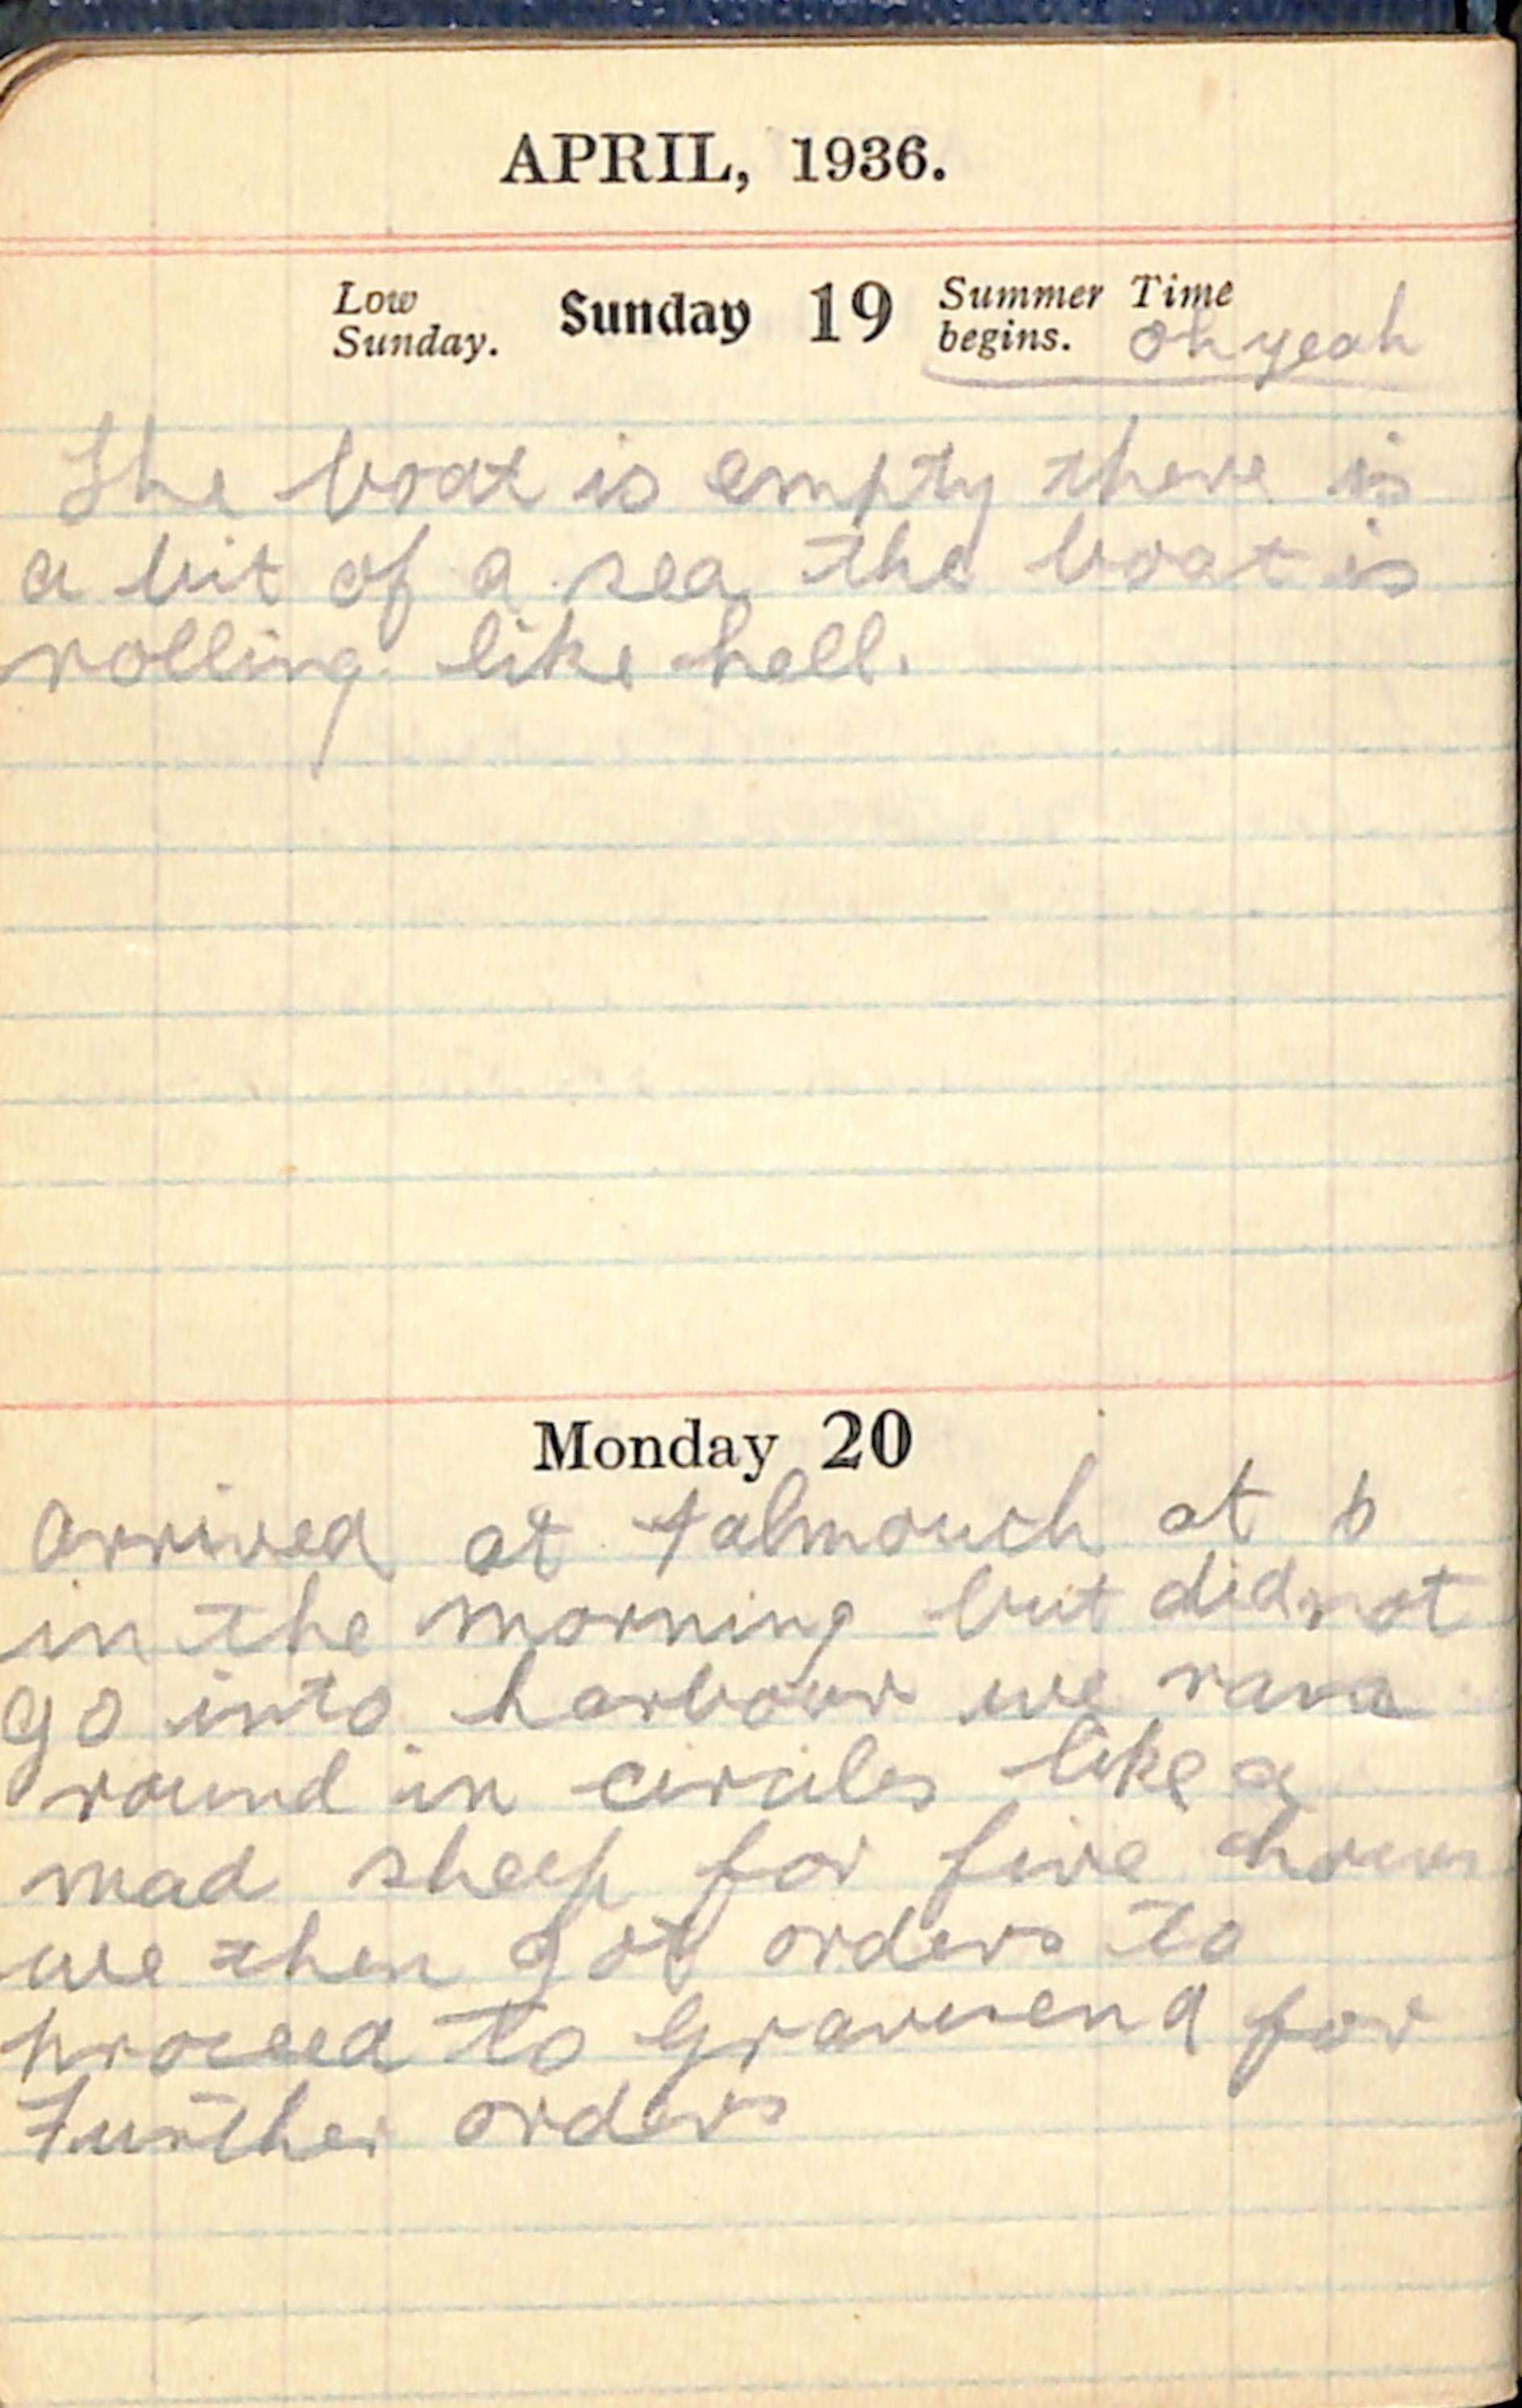 APRIL, 1936.
Low Sunday. Sunday 19 Summer Time begins. oh yeah
The boat is empty there is
a bit of a sea the boat is
rolling like hell.
Monday 20
arrived at Falmouch at 6
in the morning but did not
go into harbour we rana
round in circules like a
mad sheep for five hours
we then got orders to
proceed to Gravesend for
Further orders